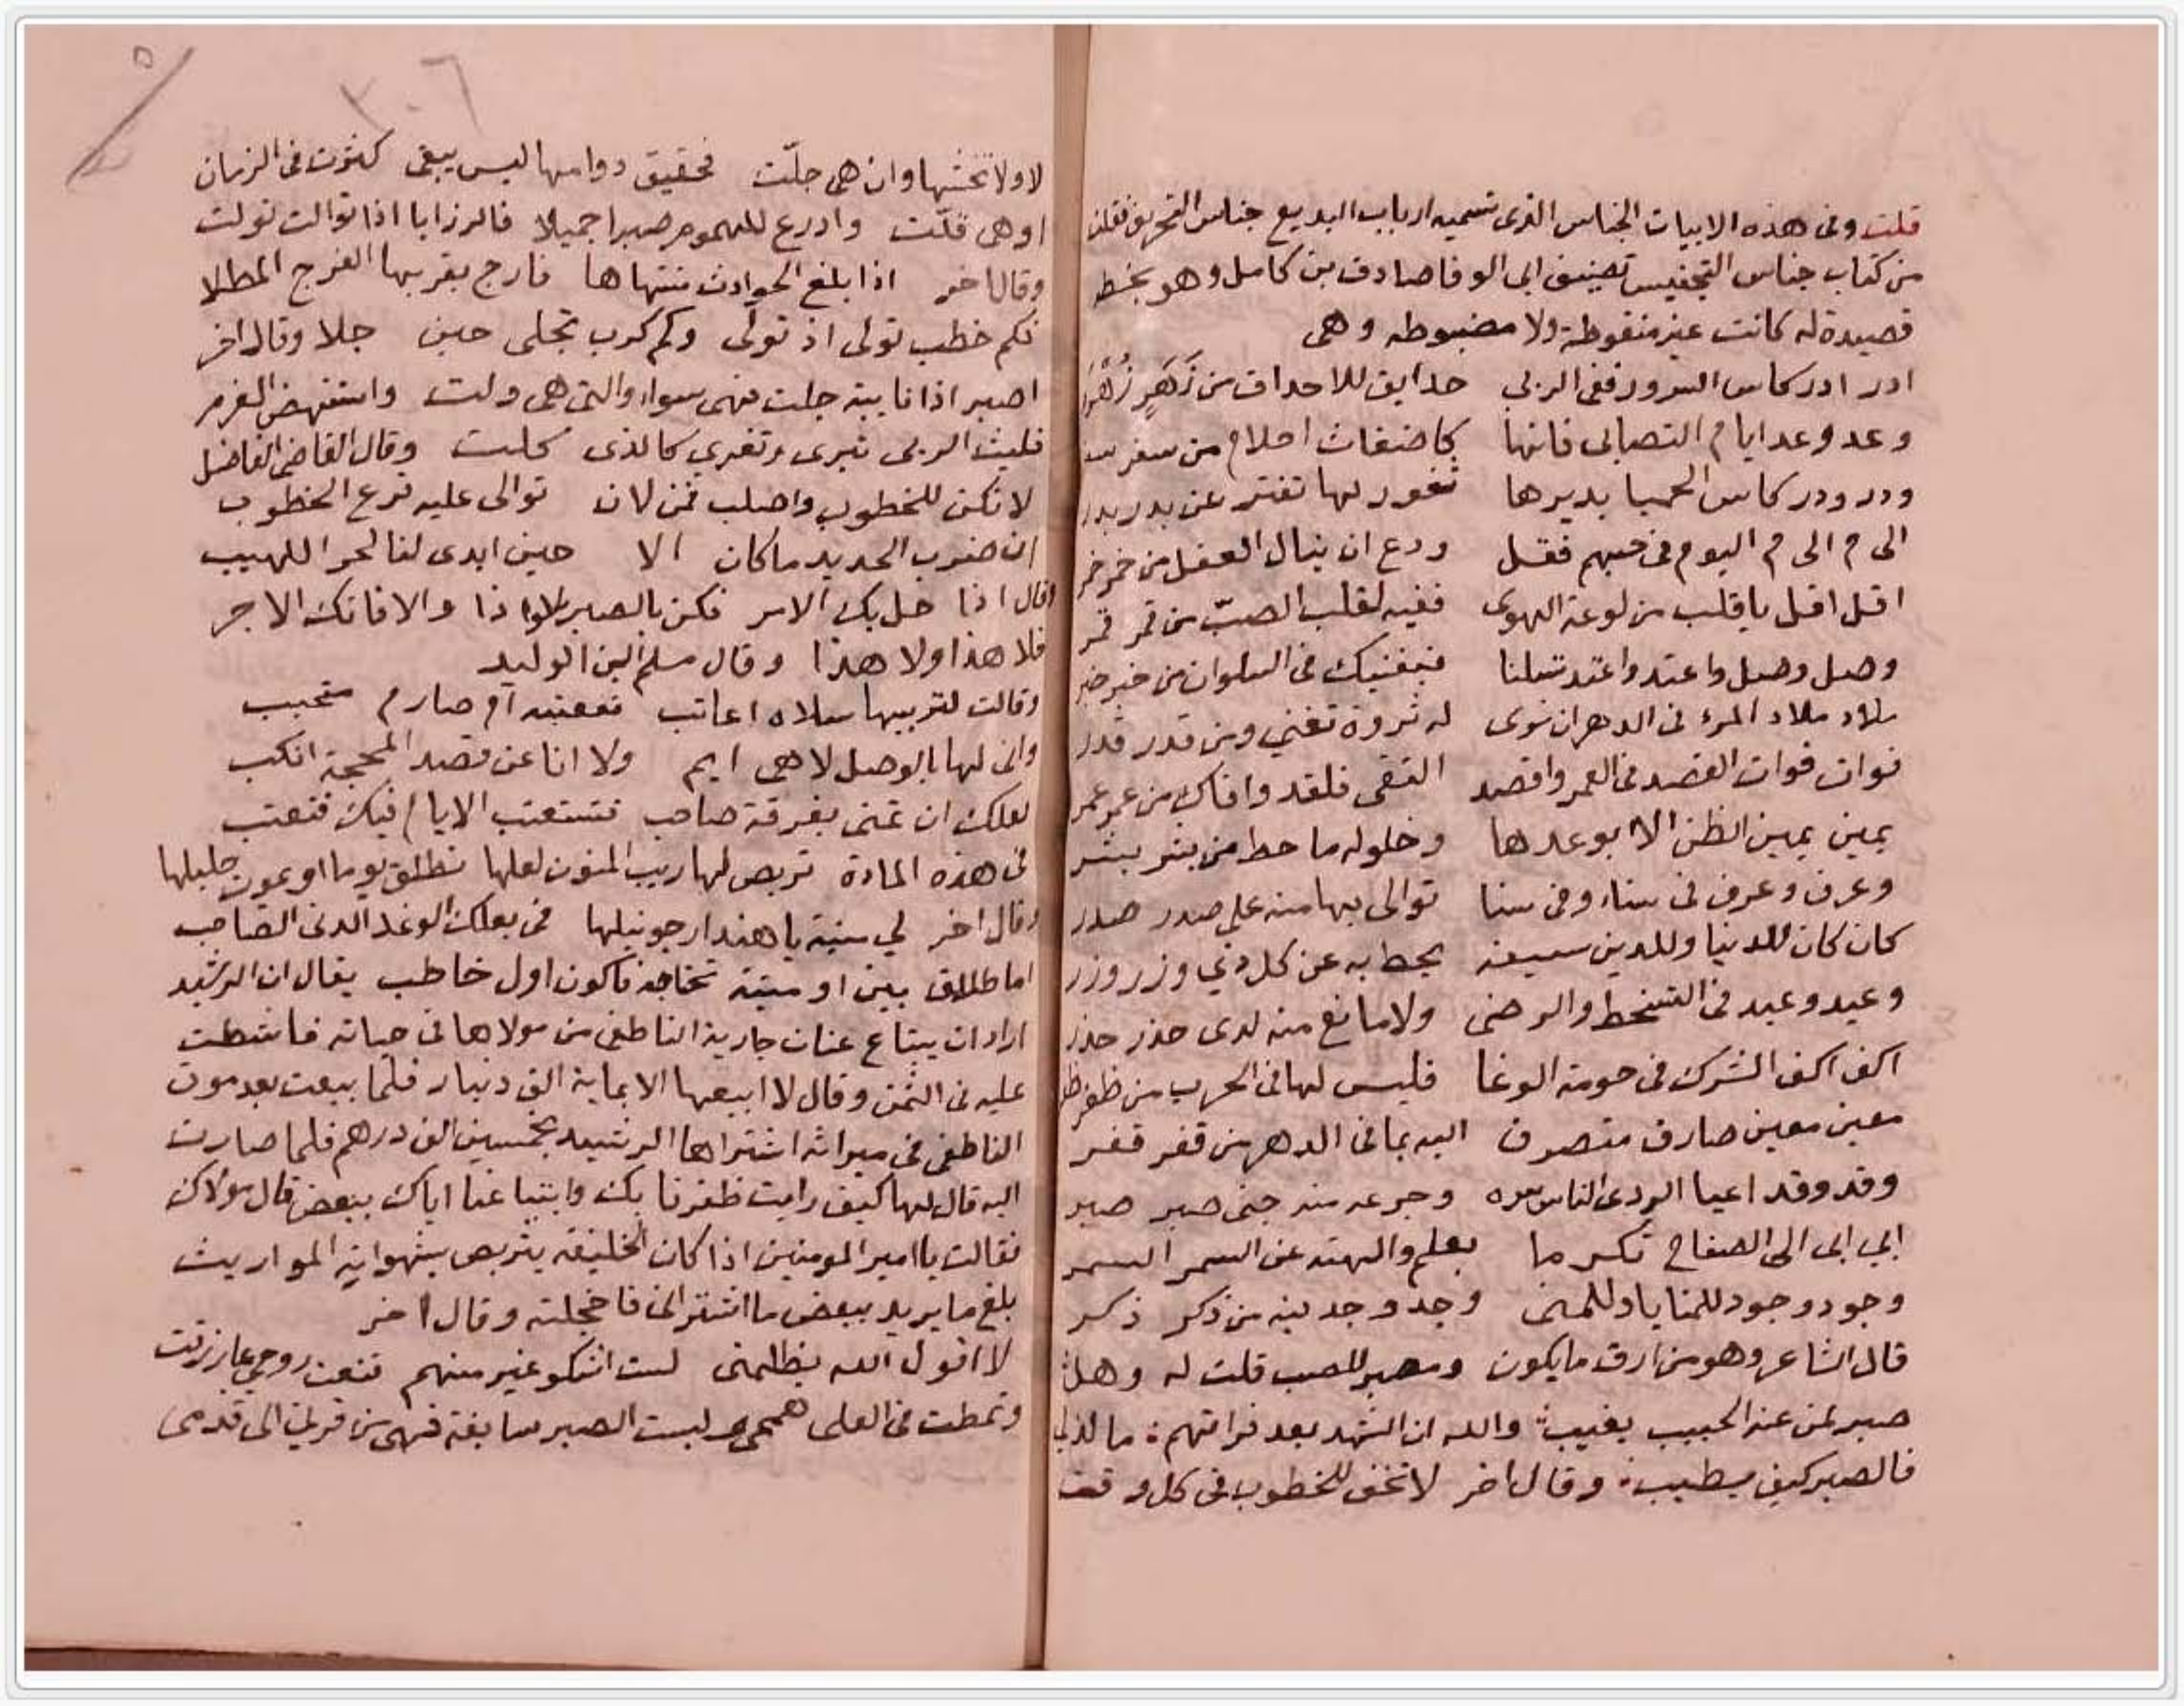 قلت وفى هذه الابيات الجناس الذى تسميه ارباب البديع جناس التحريف نقلت
من كتاب جناس التجنيس تصنيف ابى الوفا صادق بن كامل وهو بخط
قصيدة له كانت غير منقوطة ولا مضبوطه وهى
ادر ادر كاس السرور ففى الربى حدايق للاحداق من زَهَرٍ زُهْرُ
وعد وعد ايام التصابى فانها كاضغاث احلام من سفر
ودر ودر كاس الحميا بديرها ثغور لها تفتر عن بدر بدر
الى م الى م اليوم فى حبهم فقل ودع ان ينال العقل من خمر خمر
اقل اقل يا قلب من لوعة الهوى ففيه لقلب الصبّ من قمر قمر
وصل وصل واعتد واغتد نبلنا فيغنيك فى السلوان من خبر خبر
ملاد ملاد المرء فى الدهر ان نوى له ثروة تغني ومن قدر قدر
فوات فوات القصد فى العمر واقصد التقى فلقد وافاك من عمر عمر
يمين يمين الظن الا بوعدها وخلوله ما حط من بشر بشر
وعرف وعرف فى سناء وفى سنا توالى بها منه على صدر صدر
كان كان للدنيا وللدين سيفه يحط به عن كل ذي وزر وزر
وعيد وعيد فى التسخط والرضى ولا مانع منه لدى حذر حذر
اكف اكف الشرك فى حومة الوغا فليس لها فى الحرب من ظفر
معين معين صارف متصرف اليه بما فى الدهر من قفر قفر
وقد وقد اعيا الردى الناس وجرعه منه جنى صبر صبر
ابي ابى الى الصفاح تكرما بعلم والهته عن السمر السمر
وجود وجود للمنايا وللمنى وجد وجد بينه من ذكر ذكر
قال الشاعر وهو من ارق ما يكون ومصبر للصب قلت له وهل
صبر لمن عنه الحبيب يغيب والله ان الشهد بعد فراقهم ما لذ لي
فالصبر كيف يطيب وقال اخر لا تخف للخطوب فى كل وقت
٣٠٦
لا ولا تخشها وان هى جلّت فحقيق دوامها ليس يبقى كثرت فى الزمان
او هى قلّت وادرع للهموم صبرا جميلا فالرزايا اذا توالت تولت
وقال اخر اذا بلغ الحوادث منتهاها فارج بقربها الفرج المطلا
فكم خطب تولى اذ تولى وكم كرب تجلى حين جلا وقال اخر
اصبر اذا نايبة جلت فهى سواء والتى هى ولت واستنهض العزم
فليث الربى تبرى وتفري كالذى كلت وقال القاضى الفاضل
لا تكن للخطوب واصلب فمن لان توالى عليه قرع الخطوب
ان ضرب الحديد ما كان الا حين ابدى لنا لحر اللهيب
وقال اذا حل بك الامر فكن بالصبر لواذا والا فاتك الاجر
فلا هذا ولا هذا وقال مسلم ابن الوليد
وقالت لتربيها سلاه اعاتب فنعتبه ام صارم متجيب
وانى لها بالوصل لا هى ايم ولا انا عن قصد المحجة انكب
لعلك ان تمنى بفرقة صاحب فتستعتب الايام فيك فتعتب
فى هذه المادة تربص لها ريب المنون لعلها تطلق يوما او يموت حليلها
وقال اخر لي سنية يا هند ارجو نيلها فى بعلك الوغد الدنى الصاحب
اما طلاق بين او ميتة تخاجه فاكون اول خاطب يقال ان الرشيد
اراد ان يبتاع عنان جارية الناطفى من مولاها فى حياته فاشتطت
عليه فى الثمن وقال لا ابيعها الا بماية الف دينار فلما بيعت بعد موت
الناطفى فى ميراثه اشتراها الرشيد بخمسين الف درهم فلما صارت
اليه قال لها كيف رايت ظفرنا بك وابتياعنا اياك ببعض قال مولاك
فقالت يا امير المومنين اذا كان الخليفة يتربص بشهواته المواريث
بلغ ما يريد ببعض ما اشترانى فاخجلته وقال اخر
لا اقول الله يظلمنى لست اشكو غير منهم قنعت روحي بما رزقت
وتمطت فى العلى هممى ولبست الصبر سابغة فهى من قرنى الى قدمى